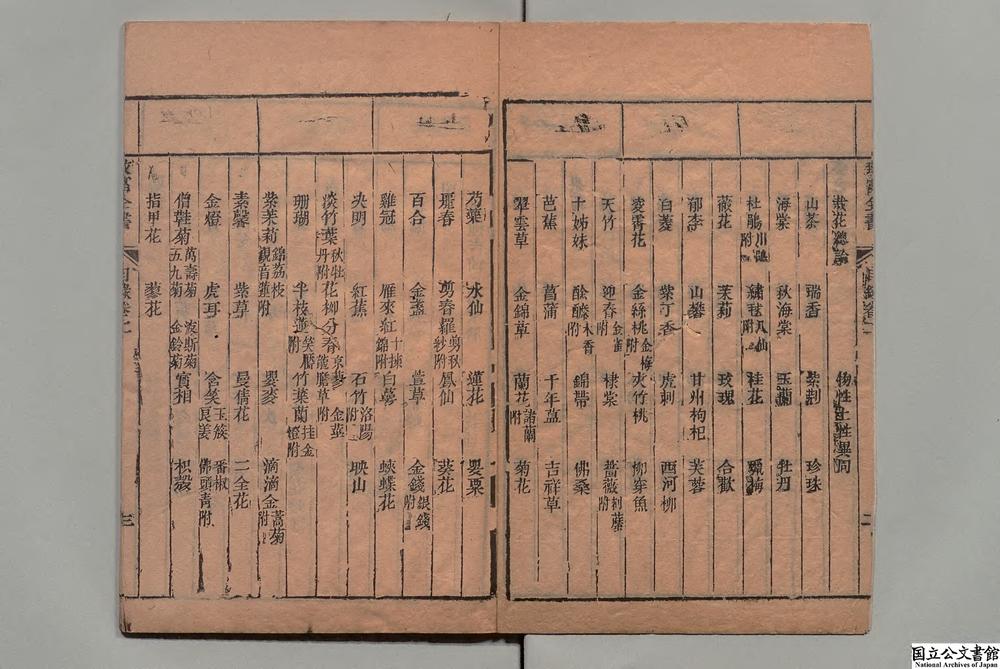 栽花總論　物性土性異同
山茶　瑞香　紫荆　珍珠
海棠　秋海棠　玉蘭　牡丹
杜鵑川鵑附　繡毬八仙附　桂花　臘梅
薇花　茉莉　玫瑰　合歡
郁李　山礬　甘州枸杞　芙蓉
白菱　紫丁香　虎刺　西河柳
凌霄花　金絲桃金梅附　夾竹桃　柳穿魚
天竹　迎春金雀附　棣棠　薔薇
十姊妹　酴醾木香附　錦帶　佛桑
芭蕉　菖蒲　千年蒀　吉祥草
翠雲草　金錦草　蘭花諸蘭附　菊花
芍藥　水仙　蓮花　罌粟
麗春　剪春羅剪秋紗附　鳳仙　葵花
百合　金盞　萱草　金錢銀錢附
雞冠　雁來紅十樣錦附　白蕚　蛺蝶花
决明　紅蕉　石竹洛陽附　映山
淡竹葉秋牡丹附　花柳分春　龍膽草附
珊瑚　半枝蓮　竹葉蘭掛金燈附
紫茉莉錦荔枝觀音蓮附　罌麥　滴滴金蒿菊附
素馨　紫草　曼倩花　二全花
金燈　虎耳　含笑玉簇良姜　番椒佛頭青附
僧鞋菊萬壽菊五九菊　波斯菊金鈴菊　實相　枳殼
指甲花　蓼花
三
国立公文書館
National Archives of Japan